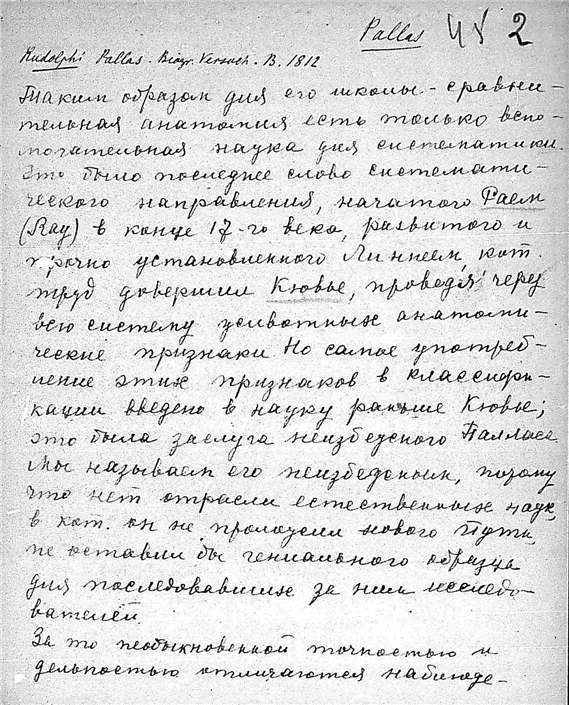 Pallas 45 2
Rudolphi Pallas. Biogr. Versuch. B. 1812
Таким образом для его школы - сравни-
тельная анатомия есть только вспо-
могательная наука для систематики.
Это было последнее слово системати-
ческого направления, начатого Раем
(Ray) в конце 17-го века, развитого и
прочно установленного Линнеем, кот.
труд довершил Кювье, проведя через
всю систему животных анатоми-
ческие признаки. Но самое употреб-
ление этих признаков в классифи-
кации введено в науку раньше Кювье;
это была заслуга неизбежного Палласа
Мы называем его неизбежным, потому
что нет отрасли естественных наук,
в кот. он не проложил нового пути,
не оставил бы гениального образца
для последовавших за ним исследо-
вателей.
За то необыкновенной точностью и
дельностью отличаются наблюде-